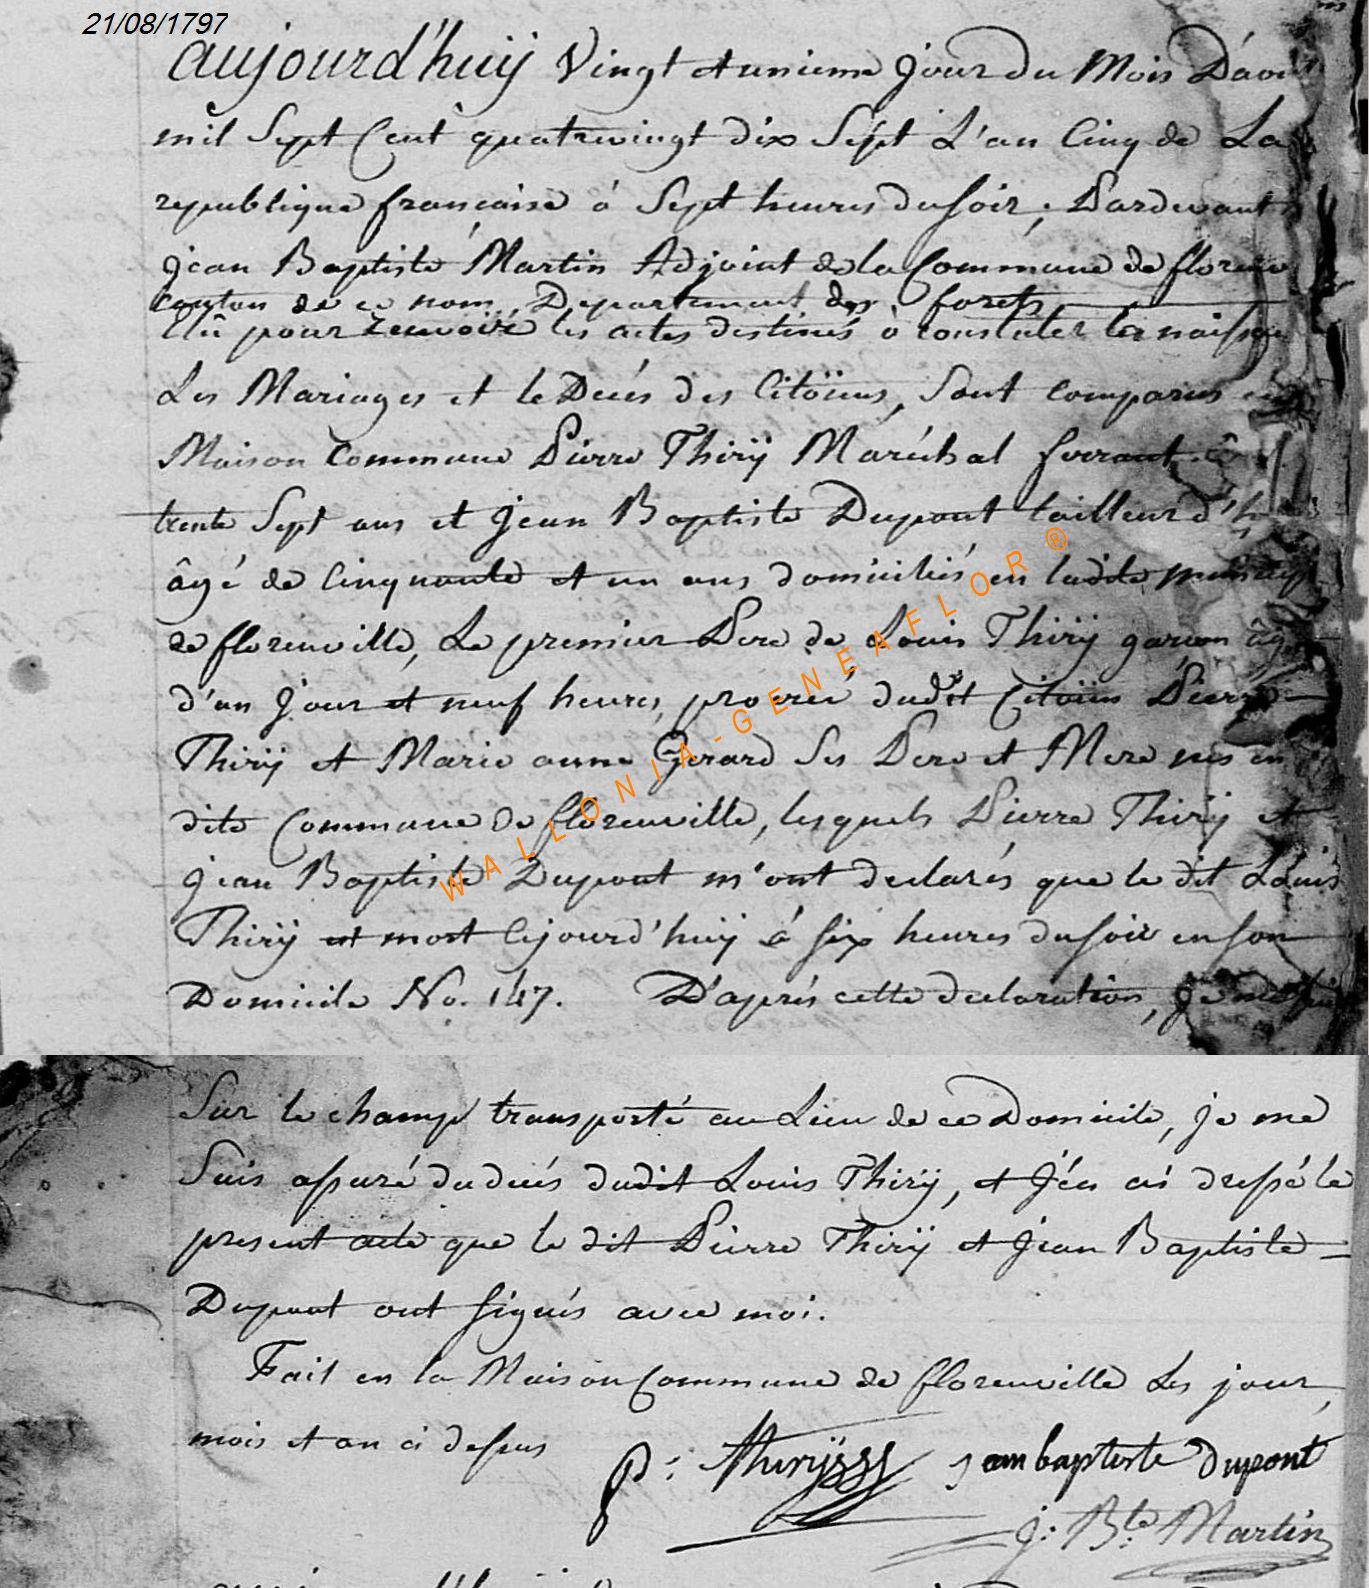 21/08/1797
aujourd'huÿ Vingt et unieme jour du Mois D'aou
mil Sept Cent quatrevingt dix Sept L'an Cinq de La
republique francaise à Sept heures du soir, Pardevant
jean Baptiste Martin Adjoint de la Commune de floren
canton de ce nom, Departement des forets
Elû pour recevoir les actes destinés à constater les naissan
Les Mariages et le Decés des Citoïens, Sont comparus en
Maison Commune Pierre Thirÿ Maréchal ferrant
trente Sept ans et jean Baptiste Dupont tailleur d'h
âgé de Cinquante et un ans domiciliés en ladite municip
de florenville, Le premier Pere de Louis Thirÿ garcon âg
d'un jour et neuf heures, procreé dudit Citoïen Pierre
Thirÿ et Marie anne Gerard Ses Pere et Mere en
dite Commune de florenville, lesquels Pierre Thirÿ et
jean Baptiste Dupont m'ont declarés que le dit Louis
Thirÿ est mort Cejourd'huÿ à six heures du soir en son
Domicile No. 147. D'aprés cette declaration, je me suis
Sur le champ transporté au Lieu de ce Domicile, je me
Suis assuré du decés dudit Louis Thirÿ, et j'én ai dressé le
present acte que le dit Pierre Thirÿ et jean Baptiste
Dupont ont signés avec moi.
Fait en la Maison Commune de florenville Les jour,
mois et an ci dessus
p: Thirÿ jean baptiste dupont
J: B.te Martin
WALLONIA-GENEAFLOR ®